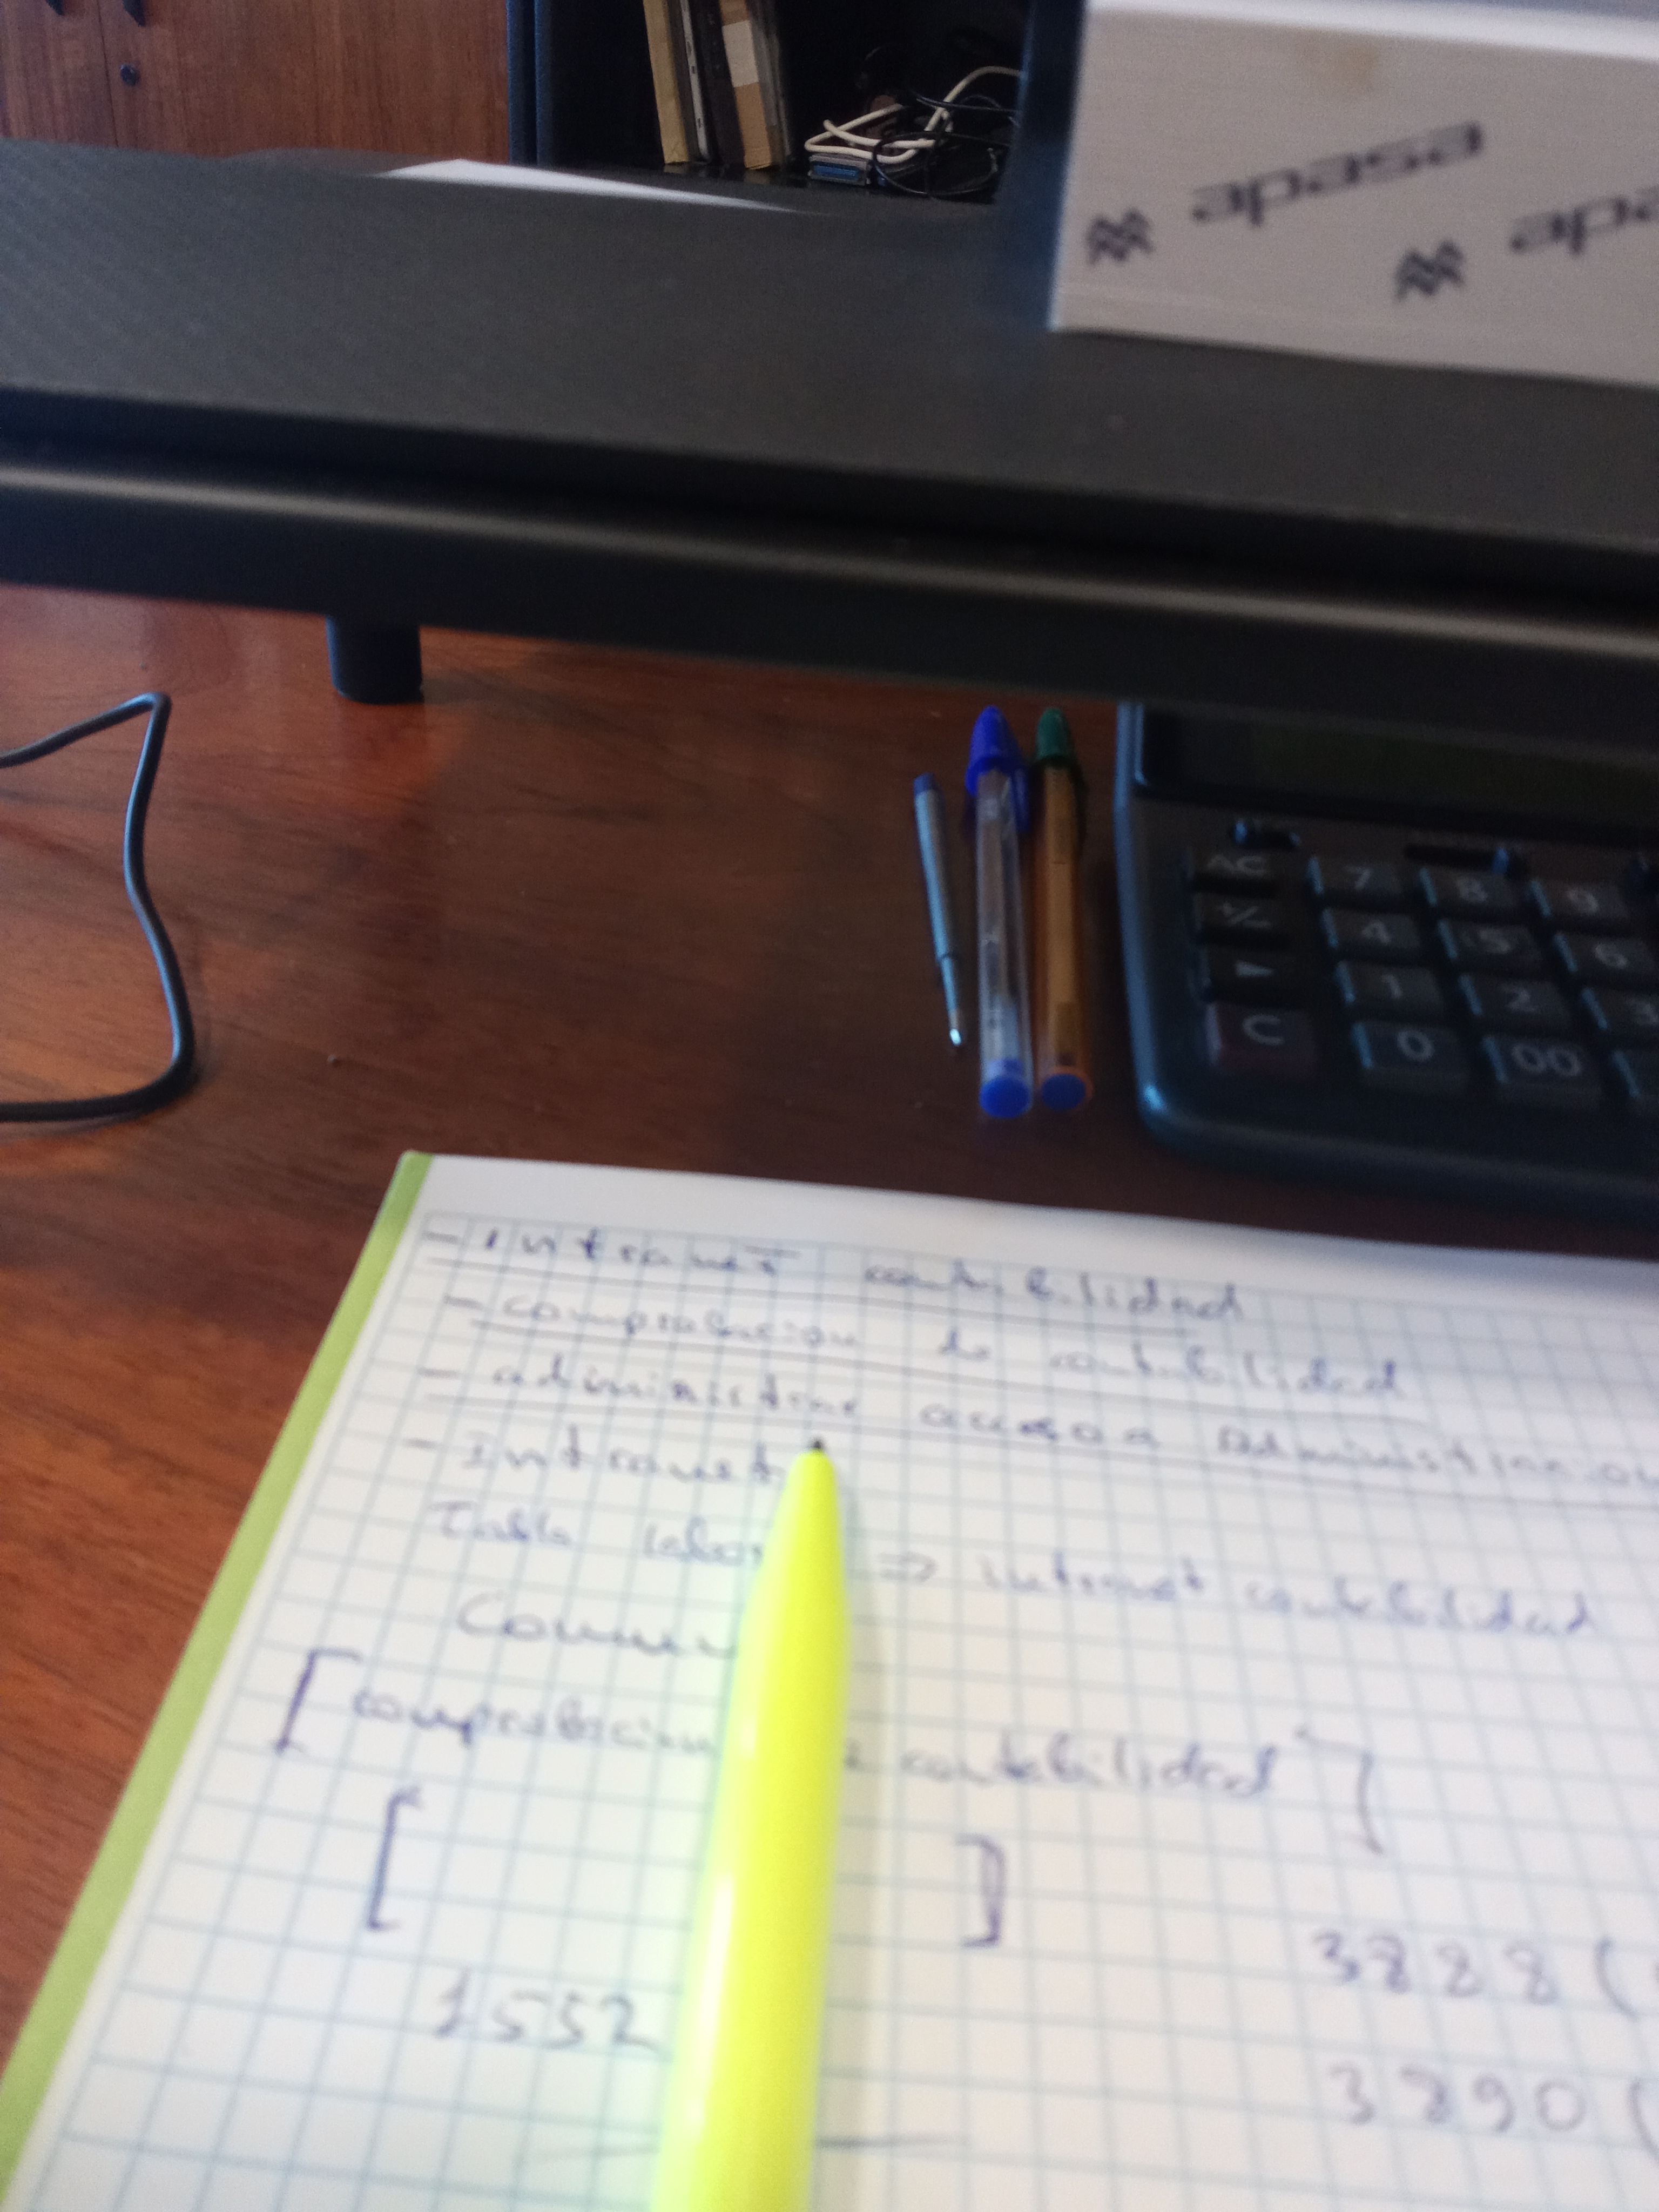 apasa
apa
AC 7 8 9
+/- 4 5 6
▶ 1 2 3
C 0 00
- Intranet contabilidad
- comprobacion de contabilidad
- administrar acceso a Administracion
- Intranet
Tabla => intranet contabilidad
[comprobacion contabilidad]
[ ]
1552
3888 (
3890 (